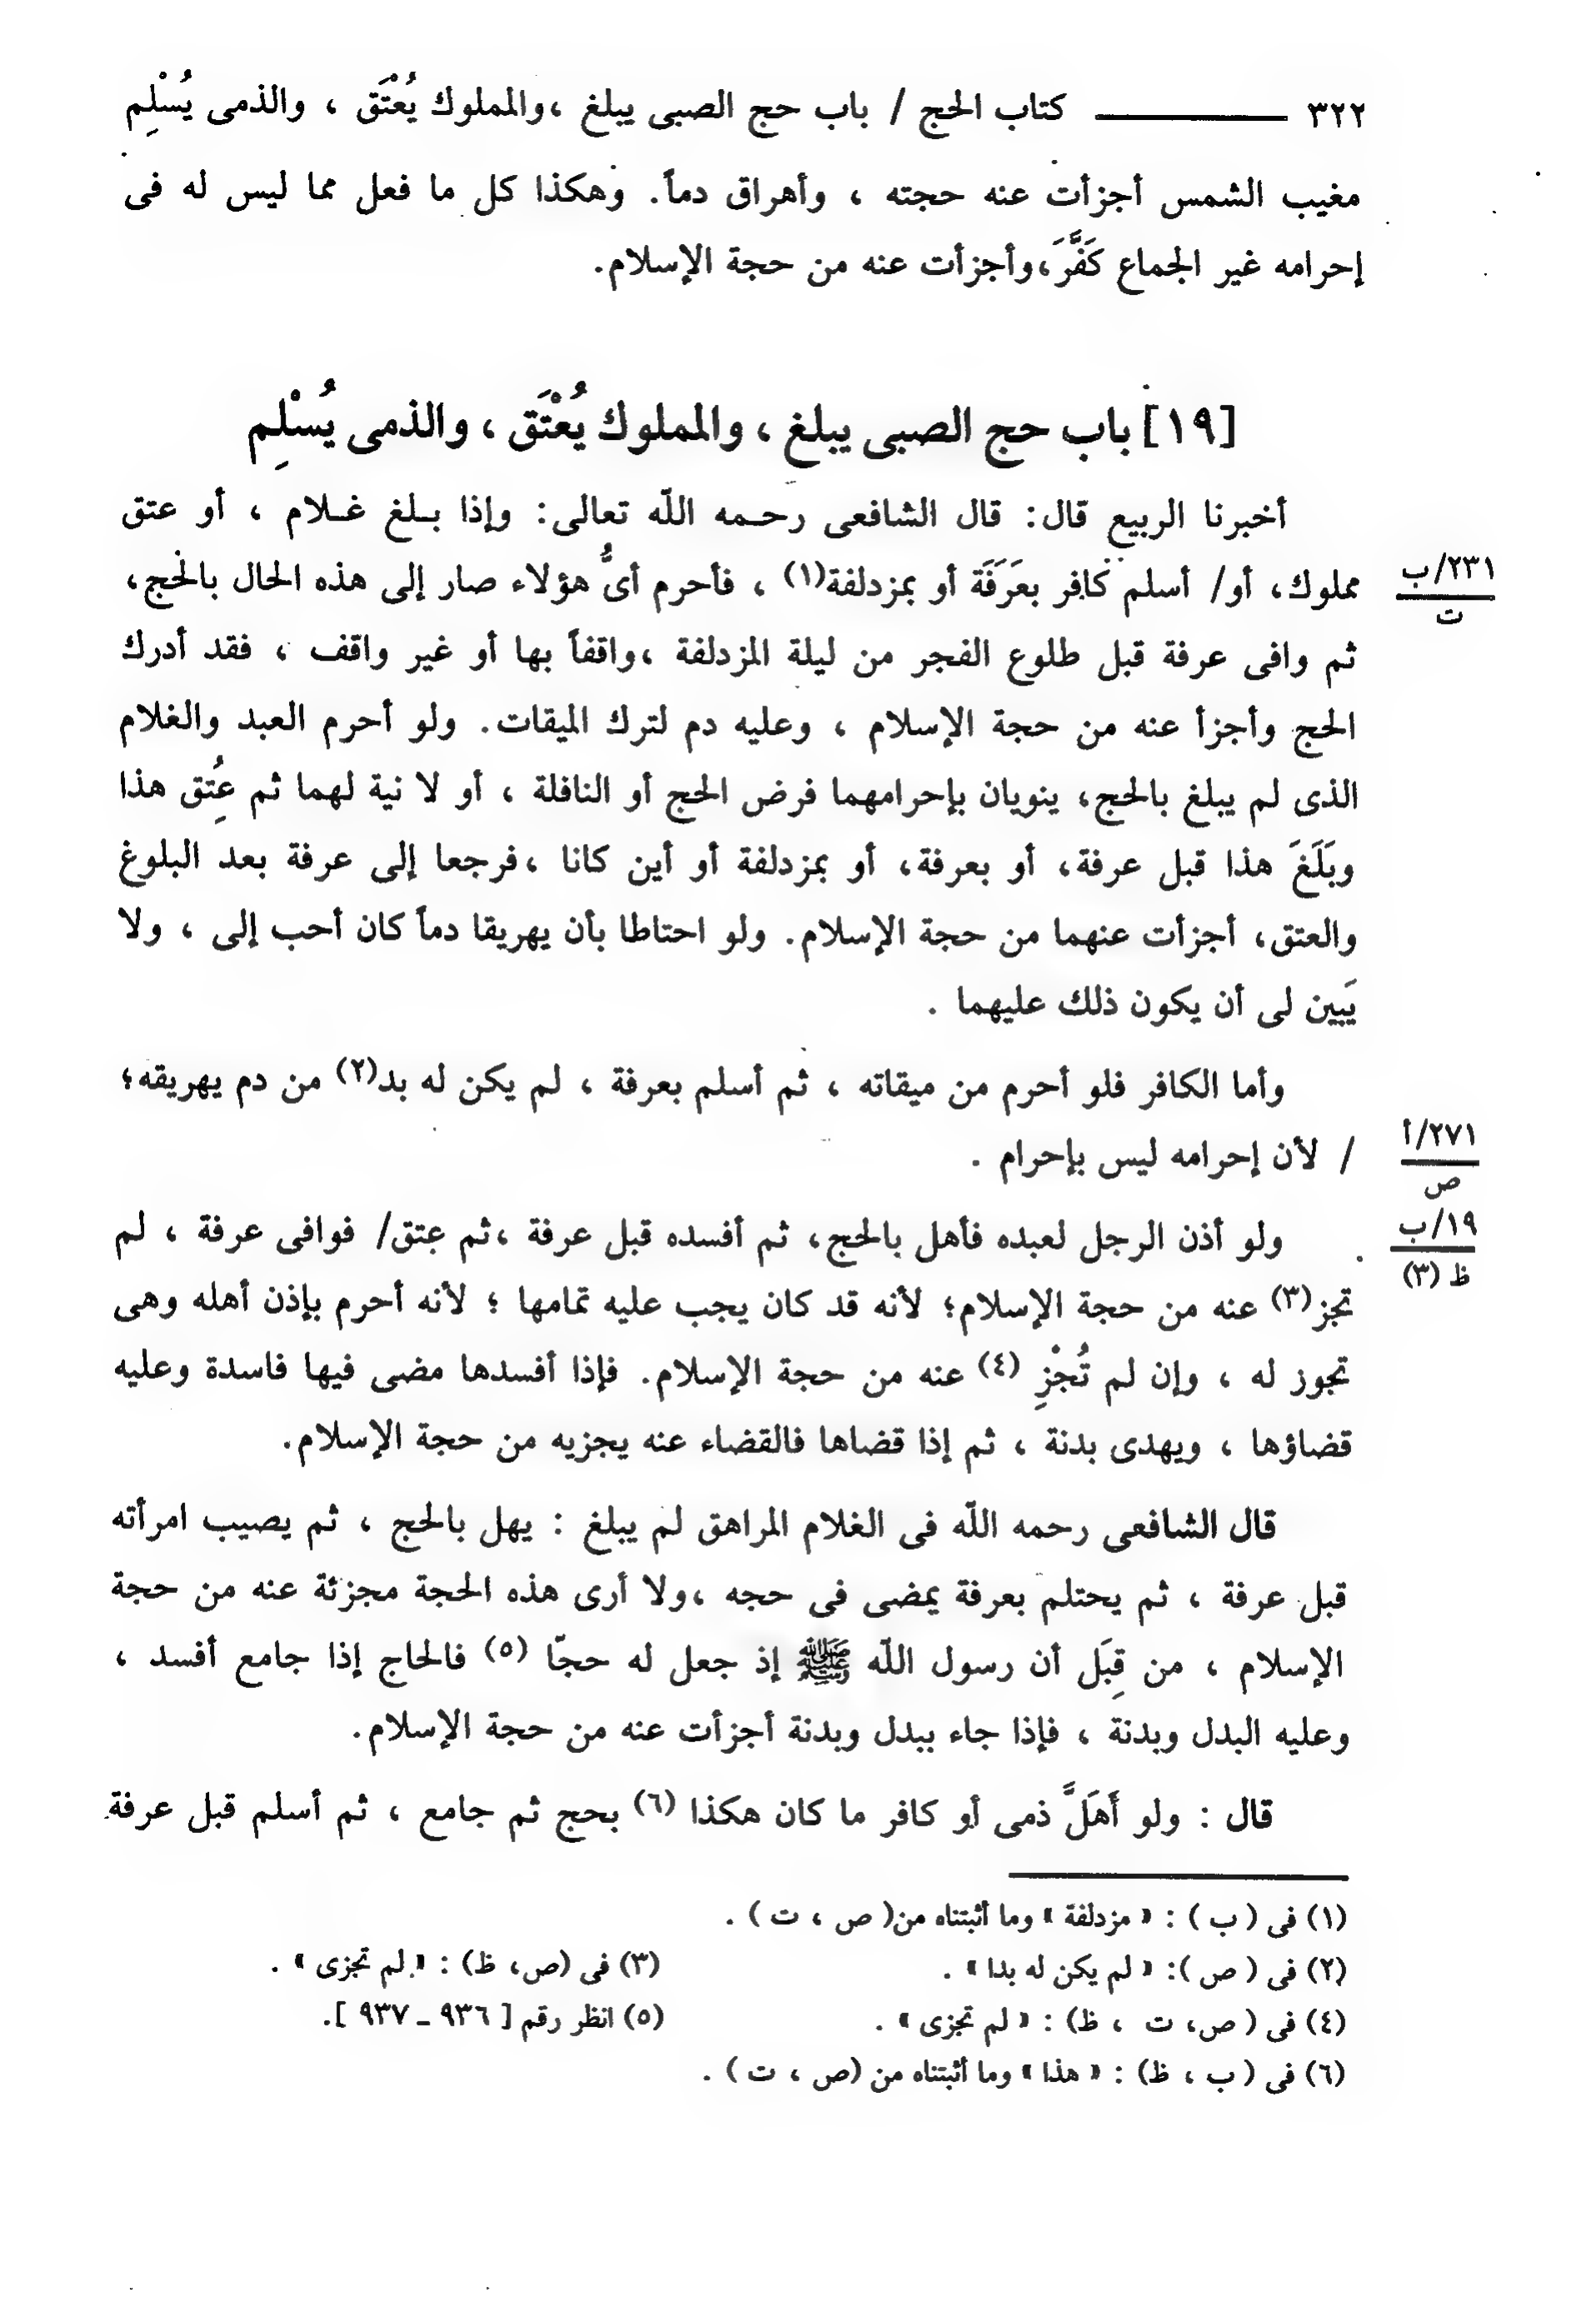 ٣٢٢ ــــــــــ كتاب الحج / باب حج الصبى يبلغ ،والمملوك يُعْتَق ، والذمى يُسْلِم
مغيب الشمس أجزأت عنه حجته ، وأهراق دماً. وهكذا كل ما فعل مما ليس له فى
إحرامه غير الجماع كَفَّرَ،وأجزأت عنه من حجة الإسلام.
[١٩] باب حج الصبى يبلغ ، والمملوك يُعْتَق ، والذمى يُسْلِم
أخبرنا الربيع قال: قال الشافعى رحـمه اللّه تعالى: وإذا بـلغ غـلام ، أو عتق
مملوك، أو/ أسلم كافر بعَرَفَة أو بمزدلفة(١) ، فأحرم أىُّ هؤلاء صار إلى هذه الحال بالحج،
٢٣١/ب
ت
ثم وافى عرفة قبل طلوع الفجر من ليلة المزدلفة ،واقفاً بها أو غير واقف ، فقد أدرك
الحج وأجزأ عنه من حجة الإسلام ، وعليه دم لترك الميقات. ولو أحرم العبد والغلام
الذى لم يبلغ بالحج، ينويان بإحرامهما فرض الحج أو النافلة ، أو لا نية لهما ثم عُتِق هذا
وبَلَغَ هذا قبل عرفة، أو بعرفة، أو بمزدلفة أو أين كانا ،فرجعا إلى عرفة بعد البلوغ
والعتق، أجزأت عنهما من حجة الإسلام. ولو احتاطا بأن يهريقا دماً كان أحب إلى ، ولا
يَبين لى أن يكون ذلك عليهما .
وأما الكافر فلو أحرم من ميقاته ، ثم أسلم بعرفة ، لم يكن له بد(٢) من دم يهريقه؛
/ لأن إحرامه ليس بإحرام .
٢٧١/أ
ص
ولو أذن الرجل لعبده فأهل بالحج، ثم أفسده قبل عرفة ،ثم عتق/ فوافى عرفة ، لم
١٩/ب
ظ (٣)
تجز(٣) عنه من حجة الإسلام؛ لأنه قد كان يجب عليه تمامها ؛ لأنه أحرم بإذن أهله وهى
تجوز له ، وإن لم تُجْزِ (٤) عنه من حجة الإسلام. فإذا أفسدها مضى فيها فاسدة وعليه
قضاؤها ، ويهدى بدنة ، ثم إذا قضاها فالقضاء عنه يجزيه من حجة الإسلام.
قال الشافعى رحمه اللّه فى الغلام المراهق لم يبلغ : يهل بالحج ، ثم يصيب امرأته
قبل عرفة ، ثم يحتلم بعرفة يمضى فى حجه ،ولا أرى هذه الحجة مجزئة عنه من حجة
الإسلام ، من قِبَل أن رسول اللّه ﷺ إذ جعل له حجّا (٥) فالحاج إذا جامع أفسد ،
وعليه البدل وبدنة ، فإذا جاء ببدل وبدنة أجزأت عنه من حجة الإسلام.
قال : ولو أَهَلَّ ذمى أو كافر ما كان هكذا (٦) بحج ثم جامع ، ثم أسلم قبل عرفة
(١) فى ( ب ) : « مزدلفة » وما أثبتناه من( ص ، ت ) .
(٢) فى ( ص ): « لم يكن له بدا » . (٣) فى (ص، ظ) : « لم تجزى » .
(٤) فى ( ص، ت ، ظ) : « لم تجزى » . (٥) انظر رقم [ ٩٣٦ ـ ٩٣٧ ].
(٦) فى ( ب ، ظ) : « هذا » وما أثبتناه من (ص ، ت ) .